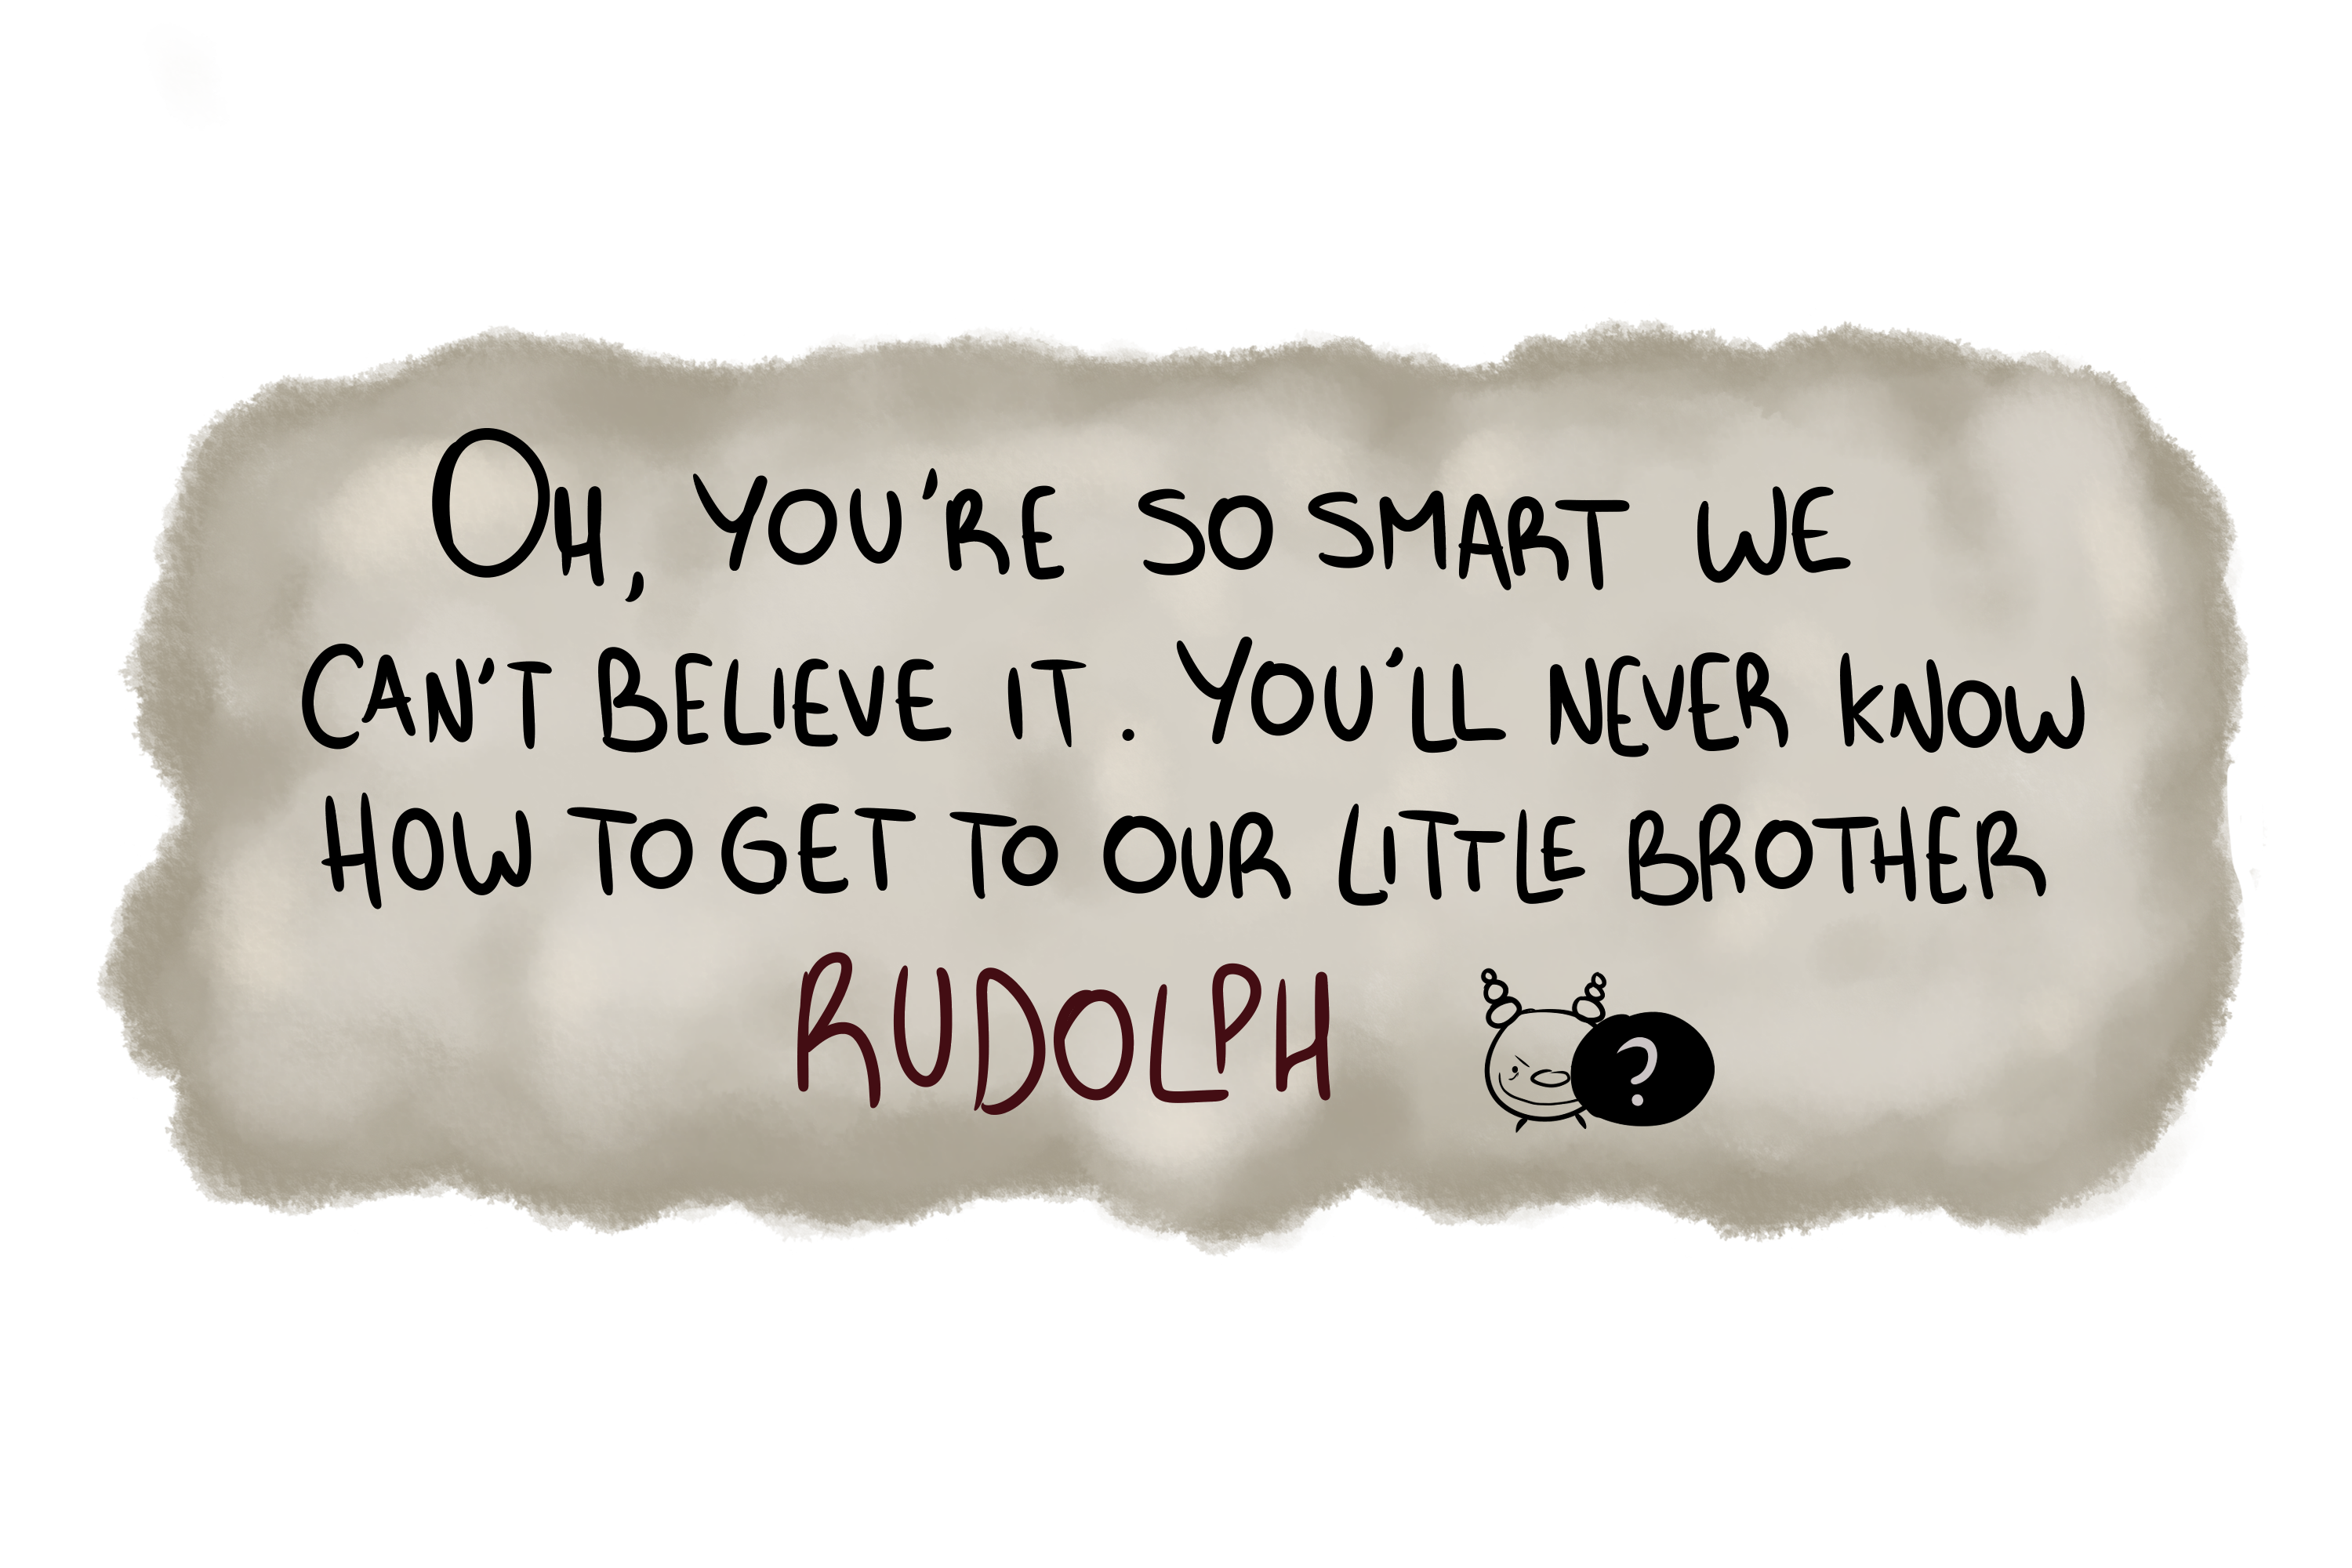 OH, YOU'RE SO SMART WE
CAN'T BELIEVE IT. YOU'LL NEVER KNOW
HOW TO GET TO OUR LITTLE BROTHER
RUDOLPH ?